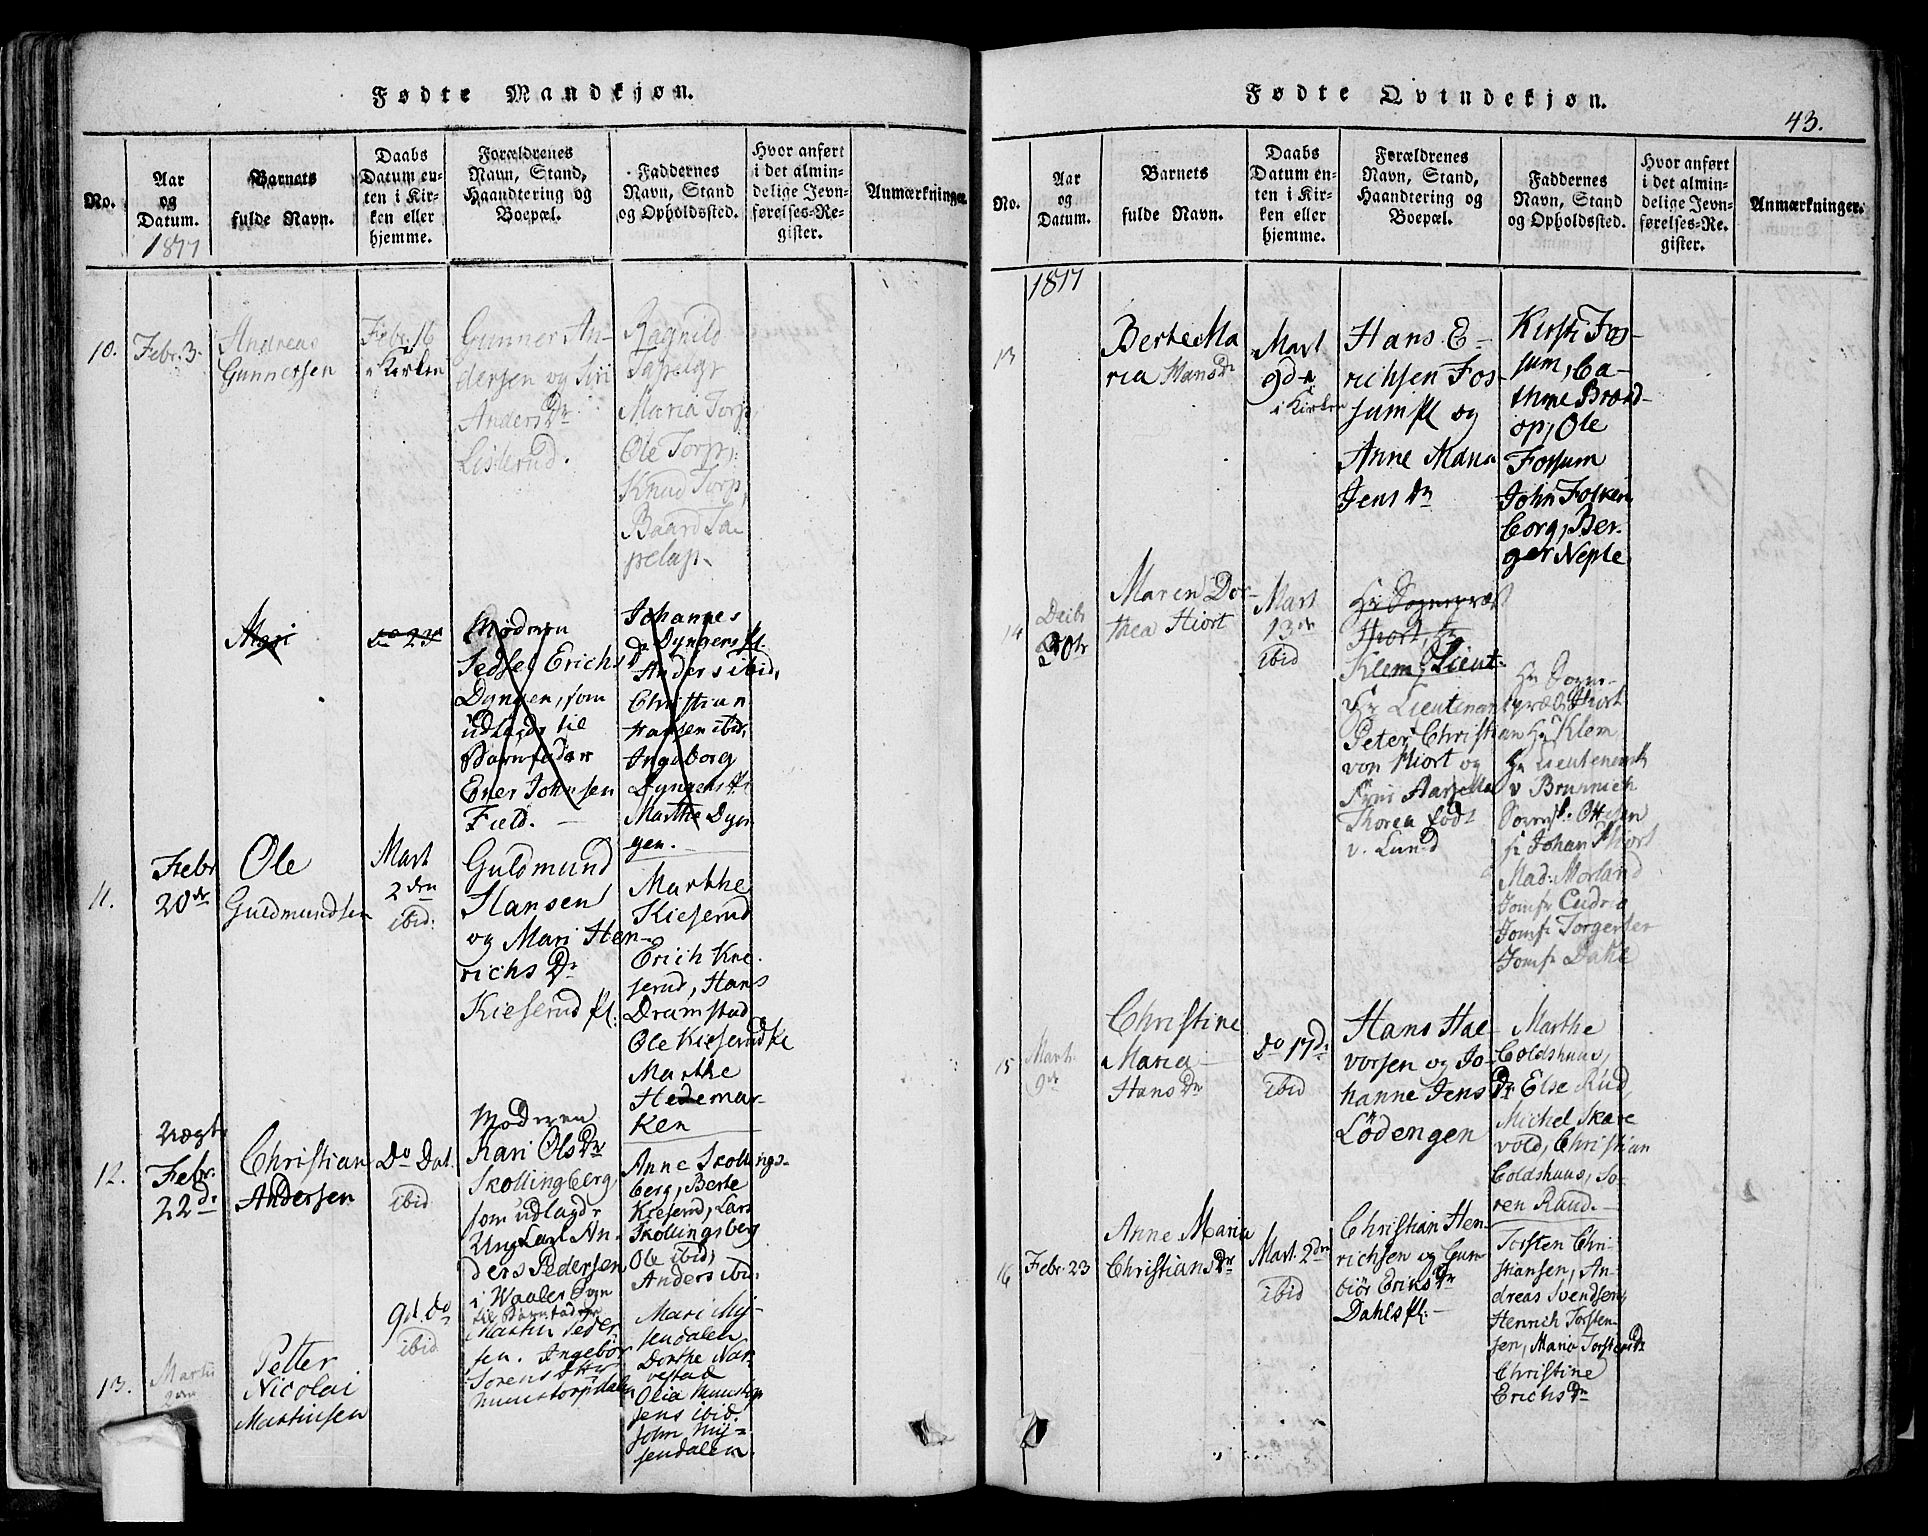 Fødte Mandkjøn.
No.
Aar
og
Datum.
1817
Barnets
fulde Navn.
Daabs
Datum en-
ten i Kir-
ken eller
hjemme.
Forældrenes
Navn, Stand,
Haandtering og
Boepæl.
Faddernes
Navn, Stand
og Opholdssted.
Hvor anført
i det almin-
delige Jevn-
førelses-Re-
gister.
Anmærkninger.
10.
Febr. 3.
Andreas
Gunnersen
Febr. 16
i Kirken
Gunner An-
dersen og Siri
Anders Dr
Listerud.
Ragnild
Maria Torp
Ole Torp,
Knud Torp,
Baard Ta-
pelap.
Mari
Do 23de
Moderen
Sedsel Erichs
Dyngen, som
udlagde til
Barnfader
Ener Johnsen
Field.
Johannes
Dyngen pl.
Anders ibid,
Christian
Hansen ibid,
Ingeborg
Dyngens pl
Marthe Dyn-
gen.
11.
Febr
20de
Ole
Guldmundsen
Mart
2den
ibid:
Guldmund
Hansen
og Mari Hen-
richs Dr
Kieserud pl:
Marthe
Kieserud
Erich Kie-
serud, Hans
Dramstad
Ole Kieserud
Marthe
Hedemar-
ken
12.
Uægte
Febr.
22d:
Christian
Andersen
Do Dat.
ibid
Moderen
Kari Ols Dr
Skollingberg,
som udlagde
Ung Karl An-
ders Pedersen
i Waaler Sogn
til Barnfader
Anne Skollings-
berg, Berte
Kieserud, Lars
Skollingsberg
Ole ibid,
Anders ibid.
13.
Martii
Petter
Nicolai
Martinsen
9d. do
ibid
Martin Peder-
sen. Ingebor
Sorens Dtr
Munstorpdalen
Mari My-
sendalen
Dorthe Nar-
vestad
Olia
Jens ibid.
John My-
sendalen.
Fødte Qvindekjøn.
43.
No.
Aar
og
Datum.
Barnets
fulde Navn.
Daabs
Datum en-
ten i Kir-
ken eller
hjemme.
Forældrenes
Navn, Stand,
Haandtering og
Boepæl.
Faddernes
Navn, Stand
og Opholdssted.
Hvor anført
i det almin-
delige Jevn-
førelses-Re-
gister.
Anmærkninger.
1817
13
Berte Ma
ria Hans Dr
Mart
9de
i Kirken
Hans E-
richsen Fos-
sum pl og
Anne Maria
Jens Dr
Kirsti Fos-
sum, Ca-
thrine Brand-
op, Ole
Fossum
John Folken
borg, Ber-
ger Neple
14
Decbr
30te
Maren Dor-
thea Hiort
Mart
13de
ibid
Hr Sognepræst
Hiort, Hr
Klem, Lieut.
Hr Lieutenant
Peter Christian
von Hiort og
Thorea født
v. Lund
Hr Sogne-
præst Hiort
Hr Klem
Hr Lieutenant
v Brunnich
Johan Hiort
Mad: Morland
Jomfr
Jomfr Torgersen
Jomfr Dahl
15
Mart.
9de
Christine
Maria
Hans Dr
Do 17d:
ibid
Hans Hal-
vorsen og Jo-
hanne Jens Dr
Lödengen
Marthe
Coldshuus,
Else Rud,
Michel Skare
vold, Christian
Coldshuus, So-
ren Raud.
16
Febr. 23
Anne Maria
Christians Dr
Mart. 2den
ibid
Christian Hen-
richsen og Gun-
biör Erichs Dr
Dahls pl:
Torsten Chri-
stiansen, An-
dreas Svendsen,
Henrich Torsten-
sen, Maria Torstens Dr
Christine
Erichs Dr